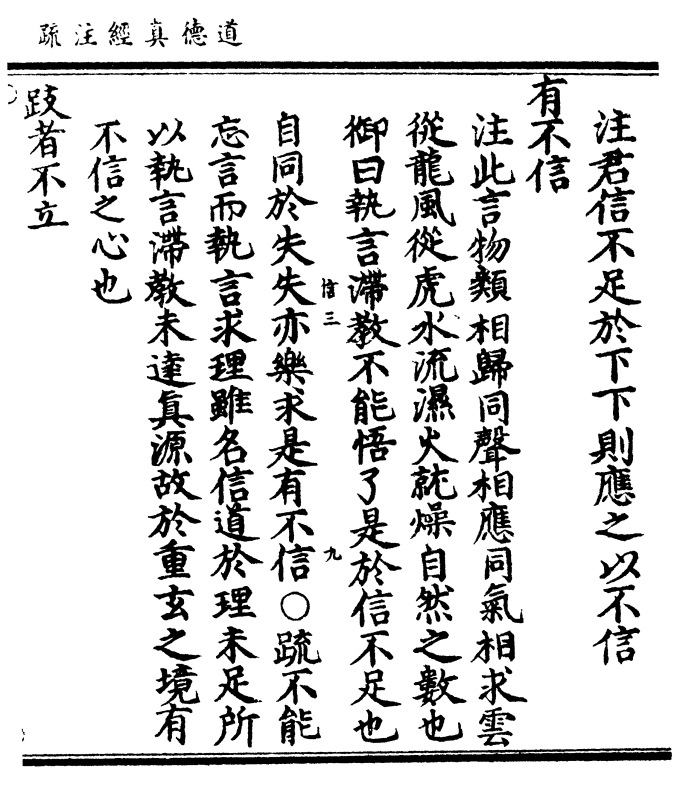 道德真經注疏
注君信不足於下下則應之以不信
有不信
注此言物類相歸同聲相應同氣相求雲
從龍風從虎水流濕火就燥自然之數也
御曰執言滯教不能悟了是於信不足也
信三 九
自同於失失亦樂求是有不信○疏不能
忘言而執言求理雖名信道於理未足所
以執言滯教未達真源故於重玄之境有
不信之心也
跂者不立